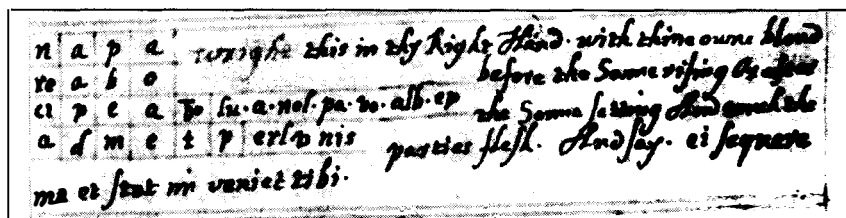 n a p a wrighe this in thy Right Hand. with thine owne bloud
re a b o before the Sonne rising Or after
ci p e a lu. a. nol. pa. vo. alb. ep the Sonne setting And touch the
a d m e t p erlv nis parties flesh. And say. ei sequere
me et stat mi veniet tibi.